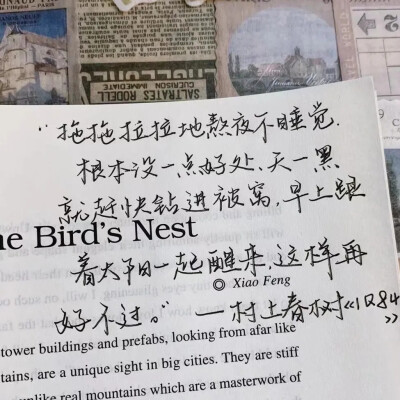 SALTRATES RODELL
"拖拖拉拉地熬夜不睡觉.
根本没一点好处、天一黑
就赶快钻进被窝,早上跟
e Bird's Nest
着太阳一起醒来.这样再
Xiao Feng
好不过。" ——村上春树《1Q84》
tower buildings and prefabs, looking from afar like
tains, are a unique sight in big cities. They are stiff
unlike real mountains which are a masterwork of